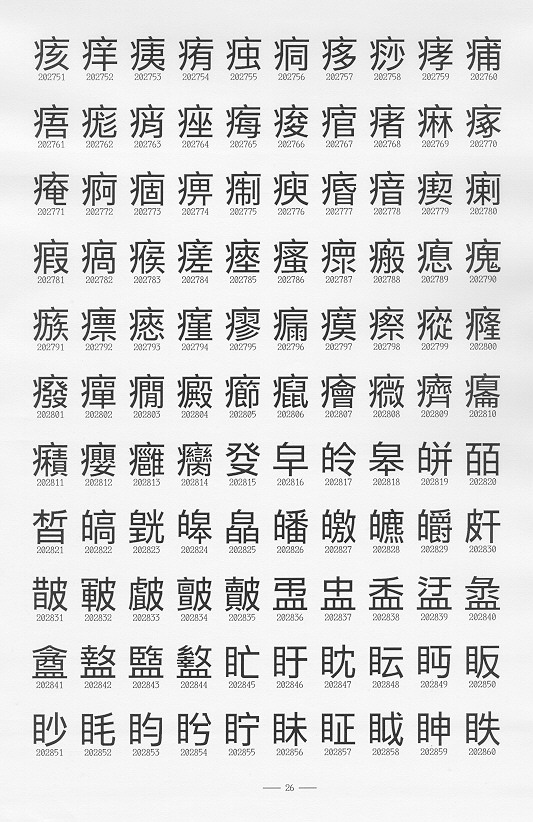 痎 痒 痍 痏 痋 痌 痑 痧 痚 痡
202751 202752 202753 202754 202755 202756 202757 202758 202759 202760
痦 痝 痟 痤 痗 痠 痯 瘏 痳 瘃
202761 202762 202763 202764 202765 202766 202767 202768 202769 202770
痷 痾 痼 痹 瘌 瘐 痻 瘖 瘈 瘌
202771 202772 202773 202774 202775 202776 202777 202778 202779 202780
瘕 瘑 瘊 瘥 瘞 瘙 瘭 瘢 瘜 瘣
202781 202782 202783 202784 202785 202786 202787 202788 202789 202790
瘯 瘭 瘱 瘽 瘳 瘺 瘼 瘵 瘲 癃
202791 202792 202793 202794 202795 202796 202797 202798 202799 202800
癈 癉 癇 癜 癤 癙 癐 癓 癠 癟
202801 202802 202803 202804 202805 202806 202807 202808 202809 202810
癪 癭 癰 癵 癹 皁 皊 皋 皏 皕
202811 202812 202813 202814 202815 202816 202817 202818 202819 202820
皙 皜 皝 皞 皛 皤 皦 皫 皭 皯
202821 202822 202823 202824 202825 202826 202827 202828 202829 202830
皵 皸 皻 皾 盂 盅 盉 盓 盠
202831 202832 202833 202834 202835 202836 202837 202838 202839 202840
盦 盩 盬 盭 盳 盱 眈 眃 眄 眅
202841 202842 202843 202844 202845 202846 202847 202848 202849 202850
眇 眊 盷 盻 眝 眛 眐 眓 眒 眣
202851 202852 202853 202854 202855 202856 202857 202858 202859 202860
26